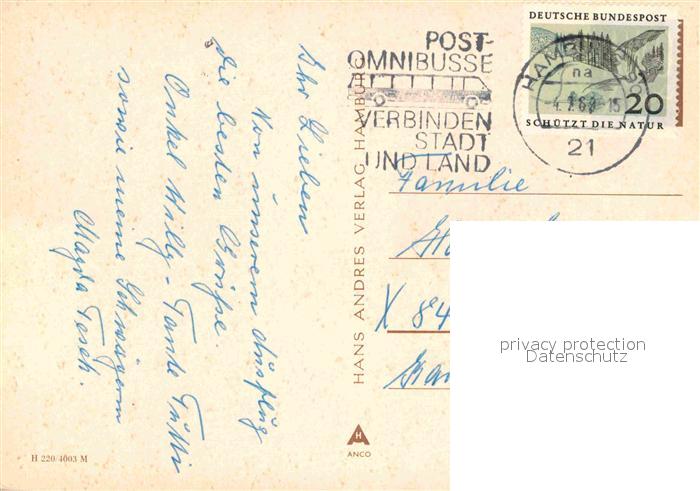 Ihr Lieben
Von unserem Ausflug
die besten Grüße.
Onkel Willy - Tante Tutti
sowie meine Schwägerin
Magda Tesch.
H 220/4003 M
HANS ANDRES VERLAG HAMBURG
ANCO
POST-
OMNIBUSSE
VERBINDEN
STADT
UND LAND
HAMBURG
na
21
DEUTSCHE BUNDESPOST
20
SCHÜTZT DIE NATUR
Familie
X 84
privacy protection
Datenschutz